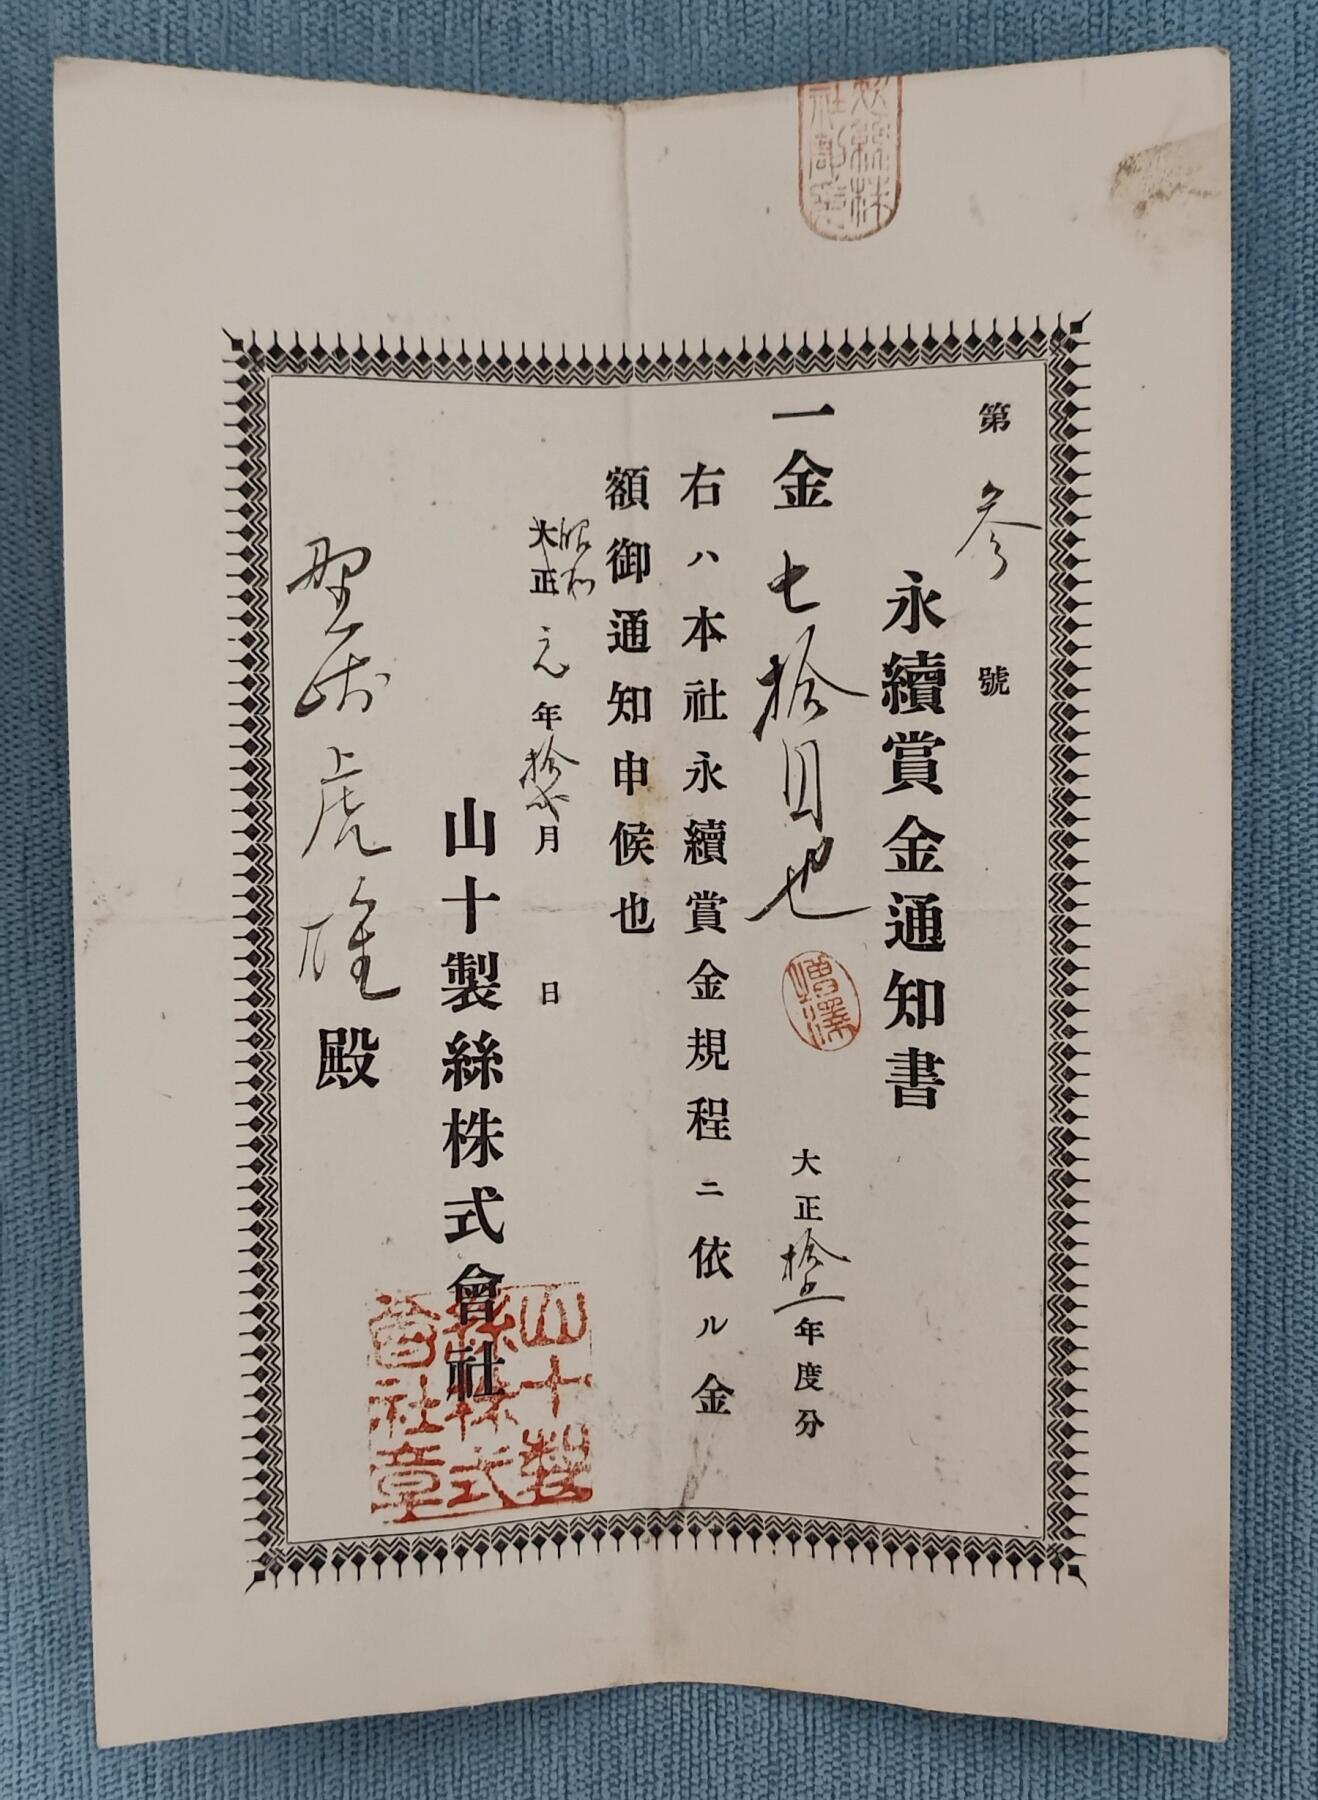 第参號
永續賞金通知書
一金七拾円也 增澤 大正拾五年度分
右ハ本社永續賞金規程ニ依ル金
額御通知申候也
昭和
大正元年拾弍月 日
山十製絲株式會社
山十製
絲株式
會社章
虎雄殿
絲株
社